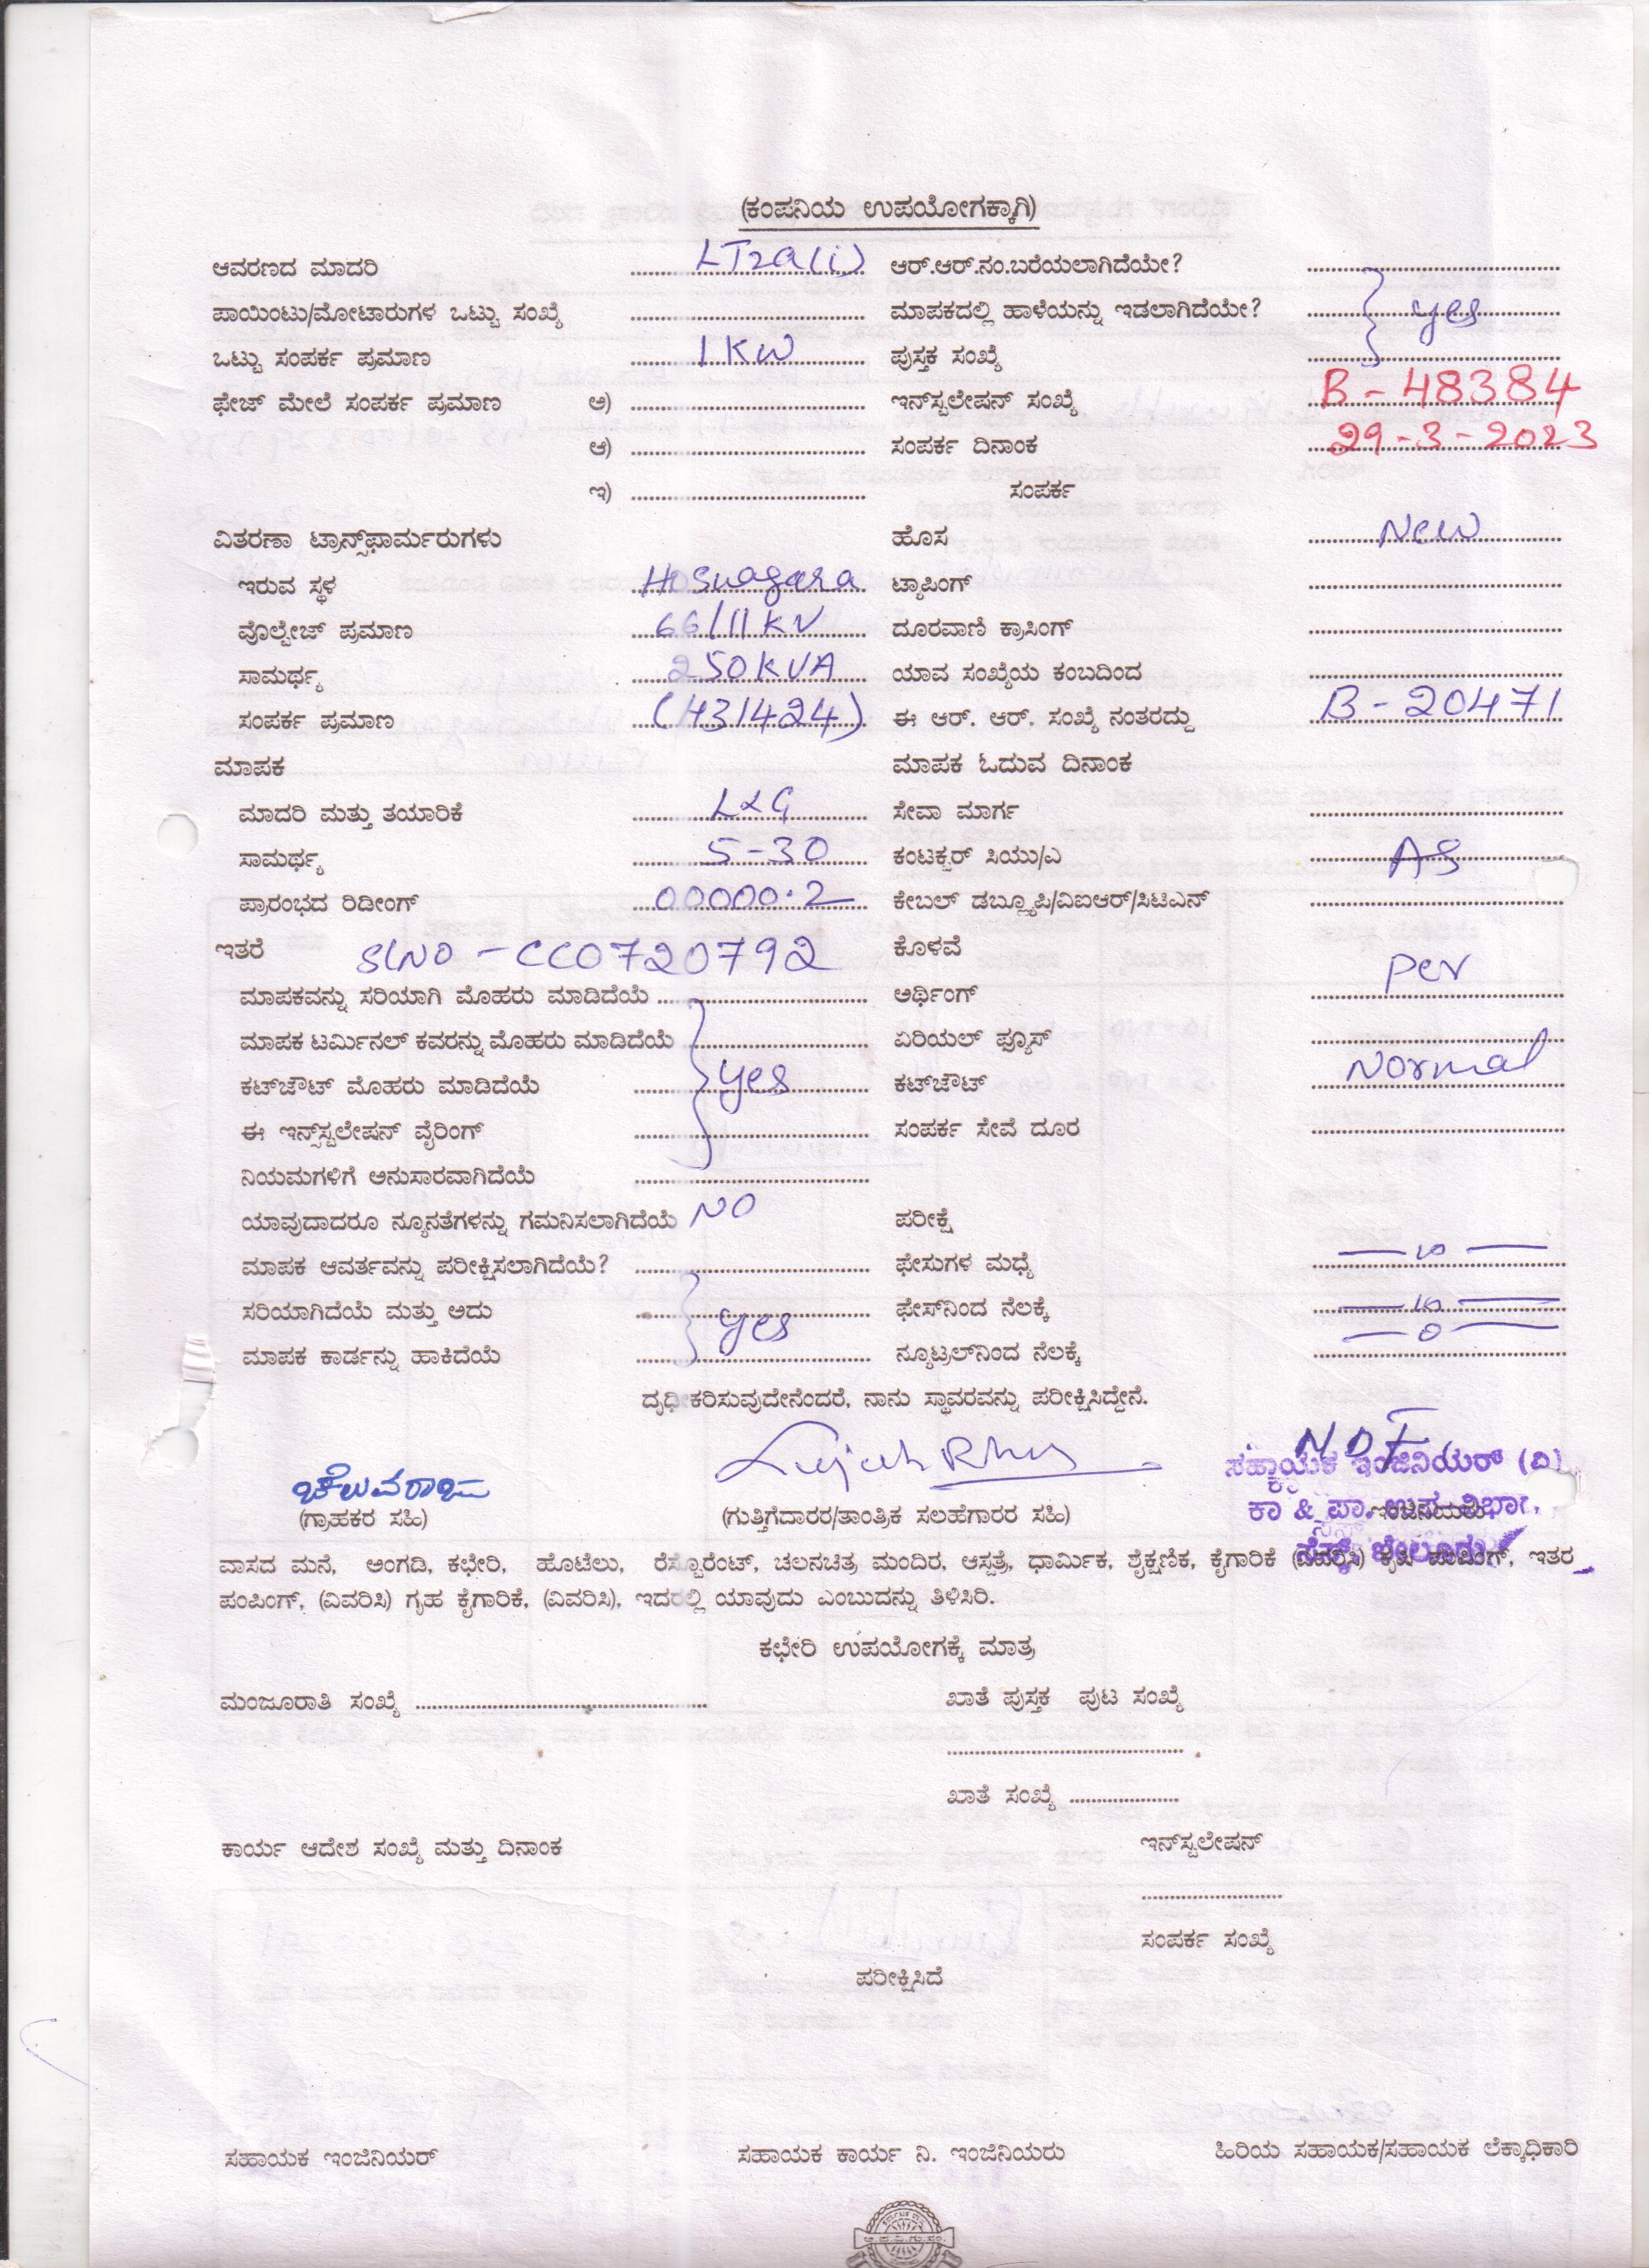 (ಕಂಪನಿಯ ಉಪಯೋಗಕ್ಕಾಗಿ)
ಆವರಣದ ಮಾದರಿ LT2a(i) ಆರ್.ಆರ್.ನಂ.ಬರೆಯಲಾಗಿದೆಯೇ?
ಪಾಯಿಂಟು/ಮೋಟಾರುಗಳ ಒಟ್ಟು ಸಂಖ್ಯೆ ಮಾಪಕದಲ್ಲಿ ಹಾಳೆಯನ್ನು ಇಡಲಾಗಿದೆಯೇ? yes
ಒಟ್ಟು ಸಂಪರ್ಕ ಪ್ರಮಾಣ 1KW ಪುಸ್ತಕ ಸಂಖ್ಯೆ
ಫೇಜ್ ಮೇಲೆ ಸಂಪರ್ಕ ಪ್ರಮಾಣ ಅ) ಇನ್‌ಸ್ಟಲೇಷನ್ ಸಂಖ್ಯೆ B-48384
ಆ) ಸಂಪರ್ಕ ದಿನಾಂಕ 29-3-2023
ಇ) ಸಂಪರ್ಕ
ವಿತರಣಾ ಟ್ರಾನ್ಸ್‌ಫಾರ್ಮರುಗಳು ಹೊಸ New
ಇರುವ ಸ್ಥಳ Hosnagara ಟ್ಯಾಪಿಂಗ್
ವೊಲ್ಟೇಜ್ ಪ್ರಮಾಣ 66/11KV ದೂರವಾಣಿ ಕ್ರಾಸಿಂಗ್
ಸಾಮರ್ಥ್ಯ 250KVA ಯಾವ ಸಂಖ್ಯೆಯ ಕಂಬದಿಂದ
ಸಂಪರ್ಕ ಪ್ರಮಾಣ (431424) ಈ ಆರ್. ಆರ್. ಸಂಖ್ಯೆ ನಂತರದ್ದು B-20471
ಮಾಪಕ ಮಾಪಕ ಓದುವ ದಿನಾಂಕ
ಮಾದರಿ ಮತ್ತು ತಯಾರಿಕೆ L&G ಸೇವಾ ಮಾರ್ಗ
ಸಾಮರ್ಥ್ಯ 5-30 ಕಂಟಕ್ಟರ್ ಸಿಯು/ಎ AS
ಪ್ರಾರಂಭದ ರಿಡೀಂಗ್ 00000.2 ಕೇಬಲ್ ಡಬ್ಲ್ಯೂಪಿ/ವಿಐಆರ್/ಸಿಟಿಎನ್
ಇತರೆ SLNO - CC0720792 ಕೊಳವೆ
ಮಾಪಕವನ್ನು ಸರಿಯಾಗಿ ಮೊಹರು ಮಾಡಿದೆಯೆ ಅರ್ಥಿಂಗ್ per
ಮಾಪಕ ಟರ್ಮಿನಲ್ ಕವರನ್ನು ಮೊಹರು ಮಾಡಿದೆಯೆ ಏರಿಯಲ್ ಫ್ಯೂಸ್
ಕಟ್‌ಔಟ್ ಮೊಹರು ಮಾಡಿದೆಯೆ yes ಕಟ್‌ಔಟ್ Normal
ಈ ಇನ್ಸ್‌ಸ್ಟಲೇಷನ್ ವೈರಿಂಗ್ ಸಂಪರ್ಕ ಸೇವೆ ದೂರ
ನಿಯಮಗಳಿಗೆ ಅನುಸಾರವಾಗಿದೆಯೆ
ಯಾವುದಾದರೂ ನ್ಯೂನತೆಗಳನ್ನು ಗಮನಿಸಲಾಗಿದೆಯೆ NO ಪರೀಕ್ಷೆ
ಮಾಪಕ ಆವರ್ತವನ್ನು ಪರೀಕ್ಷಿಸಲಾಗಿದೆಯೆ? ಫೇಸುಗಳ ಮಧ್ಯೆ
ಸರಿಯಾಗಿದೆಯೆ ಮತ್ತು ಅದು yes ಫೇಸ್‌ನಿಂದ ನೆಲಕ್ಕೆ
ಮಾಪಕ ಕಾರ್ಡನ್ನು ಹಾಕಿದೆಯೆ ನ್ಯೂಟ್ರಲ್‌ನಿಂದ ನೆಲಕ್ಕೆ — 0 —
ದೃಢೀಕರಿಸುವುದೇನೆಂದರೆ, ನಾನು ಸ್ಥಾವರವನ್ನು ಪರೀಕ್ಷಿಸಿದ್ದೇನೆ.
ಚೆಲುವರಾಜು
ಸಹಾಯಕ ಇಂಜಿನಿಯರ್ (ವಿ)
(ಗ್ರಾಹಕರ ಸಹಿ) (ಗುತ್ತಿಗೆದಾರರ/ತಾಂತ್ರಿಕ ಸಲಹೆಗಾರರ ಸಹಿ) ಇಂಜಿನಿಯರು
ಕಾ & ಪಾ. ಉಪ ವಿಭಾಗ,
ವಾಸದ ಮನೆ, ಅಂಗಡಿ, ಕಛೇರಿ, ಹೊಟೆಲು, ರೆಸ್ಟೊರೆಂಟ್, ಚಲನಚಿತ್ರ ಮಂದಿರ, ಆಸ್ಪತ್ರೆ, ಧಾರ್ಮಿಕ, ಶೈಕ್ಷಣಿಕ, ಕೈಗಾರಿಕೆ (ವಿವರಿಸಿ) ಕೃಷಿ ಪಂಪಿಂಗ್, ಇತರ
ಪಂಪಿಂಗ್, (ವಿವರಿಸಿ) ಗೃಹ ಕೈಗಾರಿಕೆ, (ವಿವರಿಸಿ), ಇದರಲ್ಲಿ ಯಾವುದು ಎಂಬುದನ್ನು ತಿಳಿಸಿರಿ.
ಕಛೇರಿ ಉಪಯೋಗಕ್ಕೆ ಮಾತ್ರ
ಮಂಜೂರಾತಿ ಸಂಖ್ಯೆ ಖಾತೆ ಪುಸ್ತಕ ಪುಟ ಸಂಖ್ಯೆ
ಖಾತೆ ಸಂಖ್ಯೆ
ಕಾರ್ಯ ಆದೇಶ ಸಂಖ್ಯೆ ಮತ್ತು ದಿನಾಂಕ ಇನ್‌ಸ್ಟಲೇಷನ್
ಸಂಪರ್ಕ ಸಂಖ್ಯೆ
ಪರೀಕ್ಷಿಸಿದೆ
ಸಹಾಯಕ ಇಂಜಿನಿಯರ್ ಸಹಾಯಕ ಕಾರ್ಯ ನಿ. ಇಂಜಿನಿಯರು ಹಿರಿಯ ಸಹಾಯಕ/ಸಹಾಯಕ ಲೆಕ್ಕಾಧಿಕಾರಿ